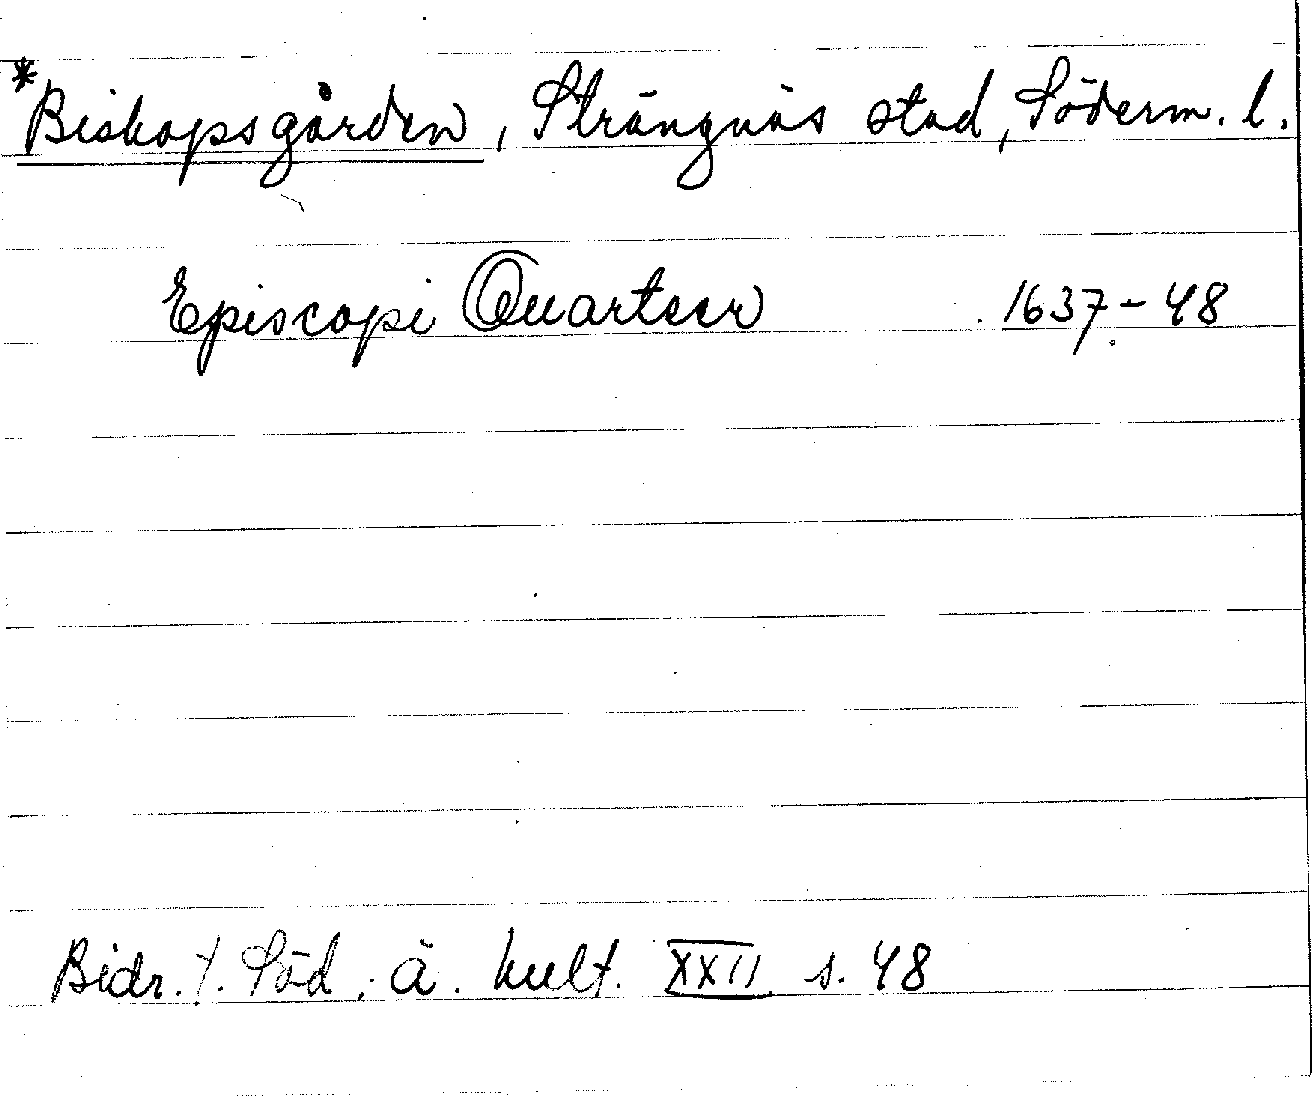 *Biskopsgården, Strängnäs stad, Söderm. l.
Episcopi Quarteer 1637-48
Bidr. t. Söd. ä. kult. XXII s. 48